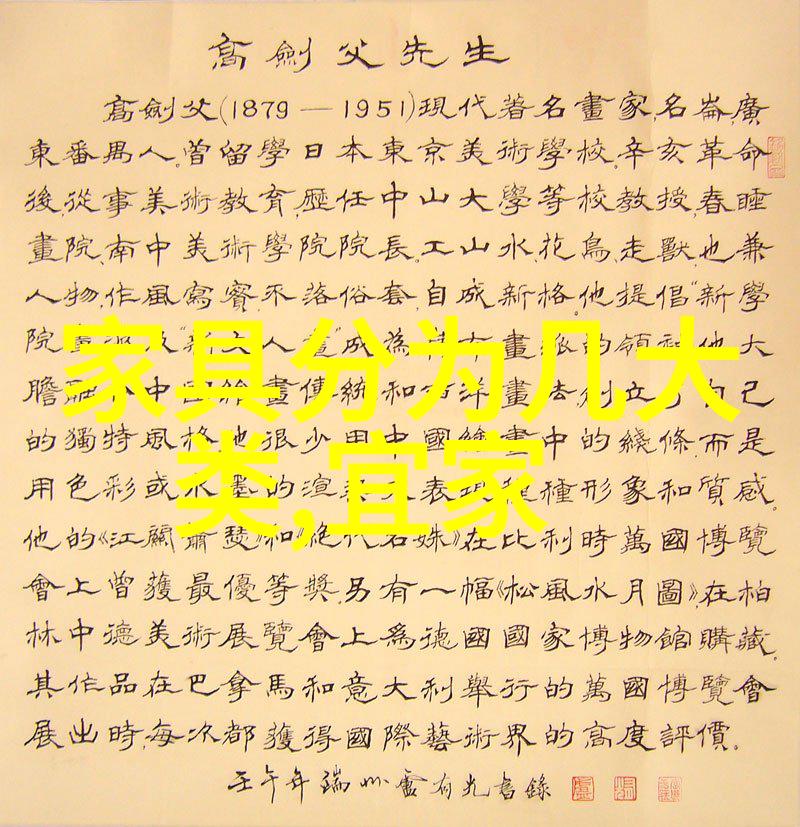 高劍父先生
高劍父(1879—1951)現代著名畫家,名崙,廣
東番禺人。曾留學日本東京美術學校。辛亥革命
後,從事美術教育,歷任中山大學等校教授,春睡
畫院、南中美術學院院長。工山水、花鳥、走獸,也兼
人物,作風寫實,不落俗套,自成新格。他提倡"新學
院 及"新文人畫"成為 畫派的領 他大
膽 中國繪畫傳統和西洋畫法,創立 己
的獨特風格。他很少用中國繪畫中的綫條,而是
用色彩或水墨的渲 表現種種形象和質感。
他的《江關蕭瑟》和《絕代名姝》在比利時萬國博覽
會上曾獲最優等獎。另有一幅《松風水月圖》,在柏
林中德美術展覽會上爲德國國家博物館購藏。
其作品在巴拿馬和意大利舉行的萬國博覽會
展出時,每次都獲得國際藝術界的高度評價。
壬午年 瑞州盧有光書錄
家具分为几大
类,宜家